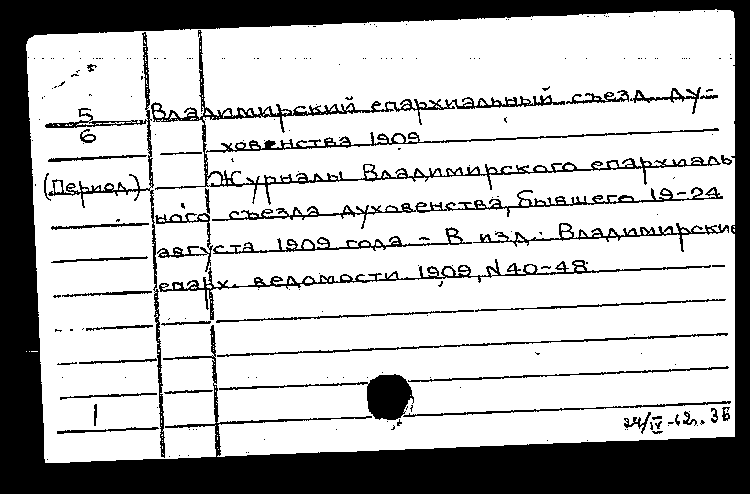 5
6
Владимирский епархиальный съезд ду-
ховенства 1909
(Период.)
Журналы Владимирского епархиаль-
ного съезда духовенства, бывшего 19-24
августа 1909 года - В изд.: Владимирские
епарх. ведомости 1909, N 40-48
1
24/IV-62г. ЗБ